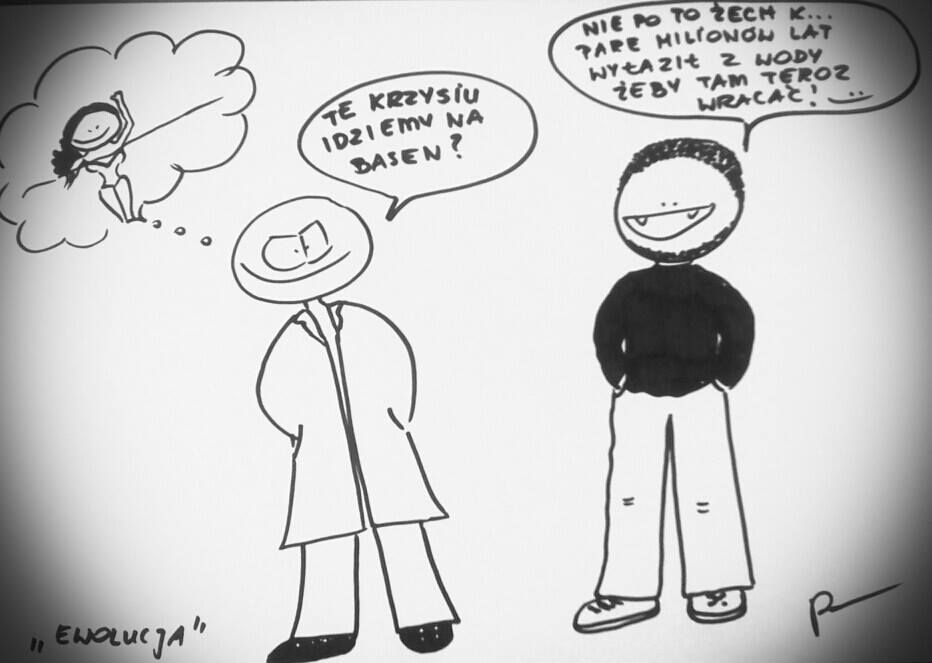 TE KRZYSIU
IDZIEMY NA
BASEN?
NIE PO TO ŻECH K...
PARE MILIONÓW LAT
WYŁAZIŁ Z WODY
ŻEBY TAM TEROZ
WRACAĆ!
„EWOLUCJA"